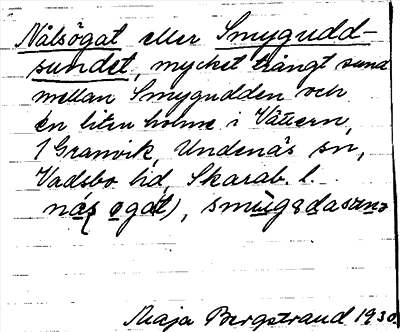 Nålsögat eller Smygudd-
sundet, mycket trångt sund
mellan Smygudden och
en liten holme i Vättern,
i Granvik, Undenäs sn,
Vadsbo hd, Skarab. l.
Maja Bergstrand 1930